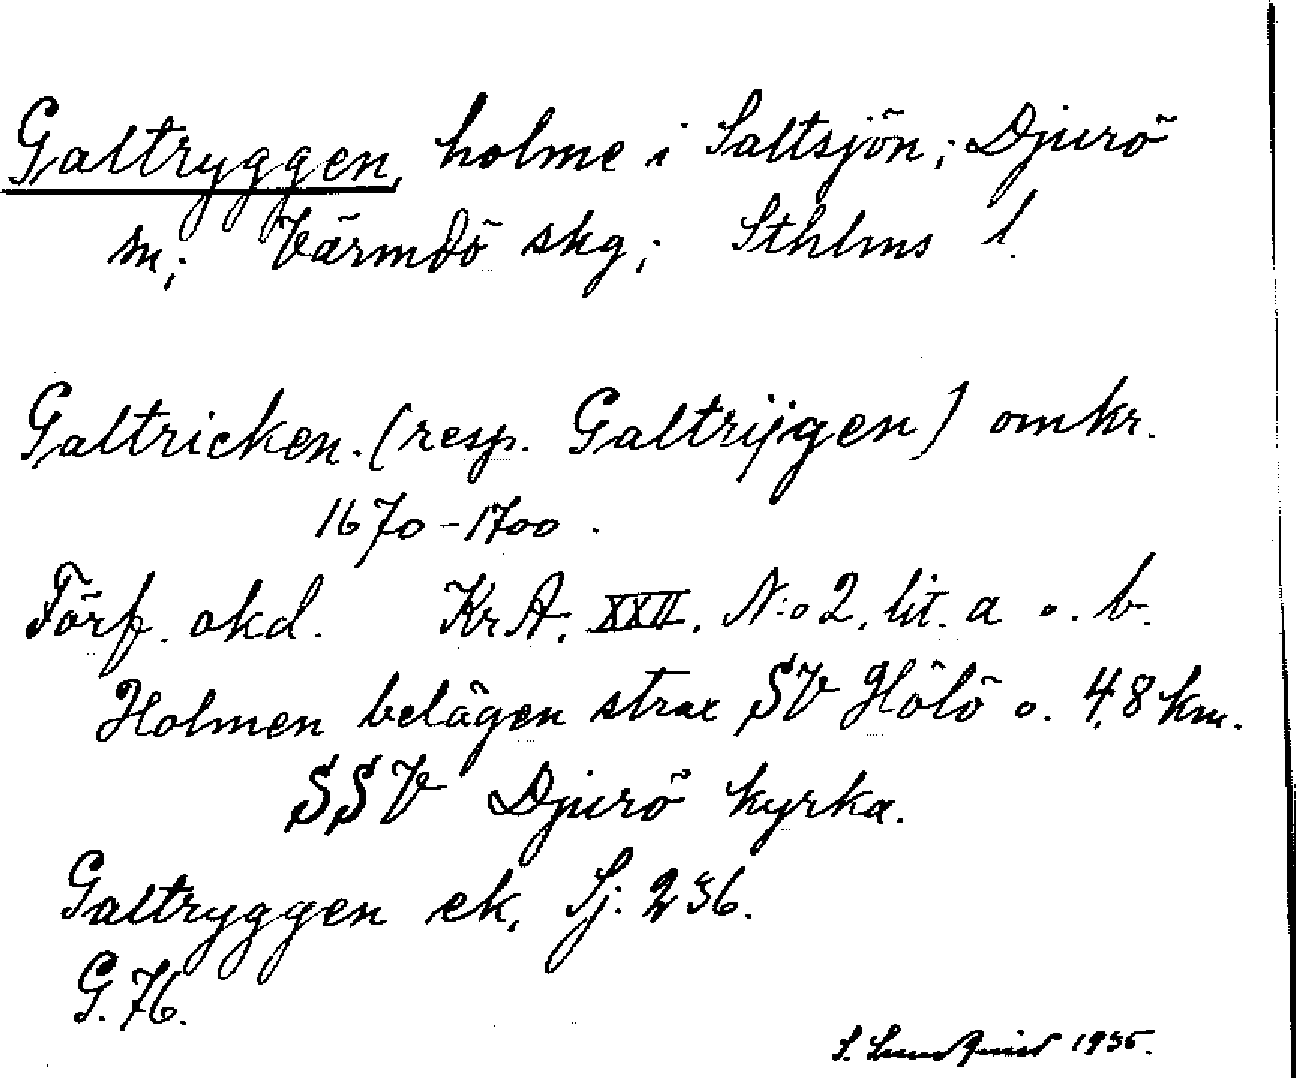 Galtryggen, holme i Saltsjön; Djurö
sn; Värmdö skg; Sthlms l.
Galtricken. (resp. Galtrijgen) omkr.
1670-1700.
Förf. okd. KrA. XXII. N:o 2. lit. a o. b.
Holmen belägen strax SV Hölö o. 4,8 km.
SSV Djurö kyrka.
Galtryggen ek. Sj. 236.
G. 76.
S. Lundquist 1935.